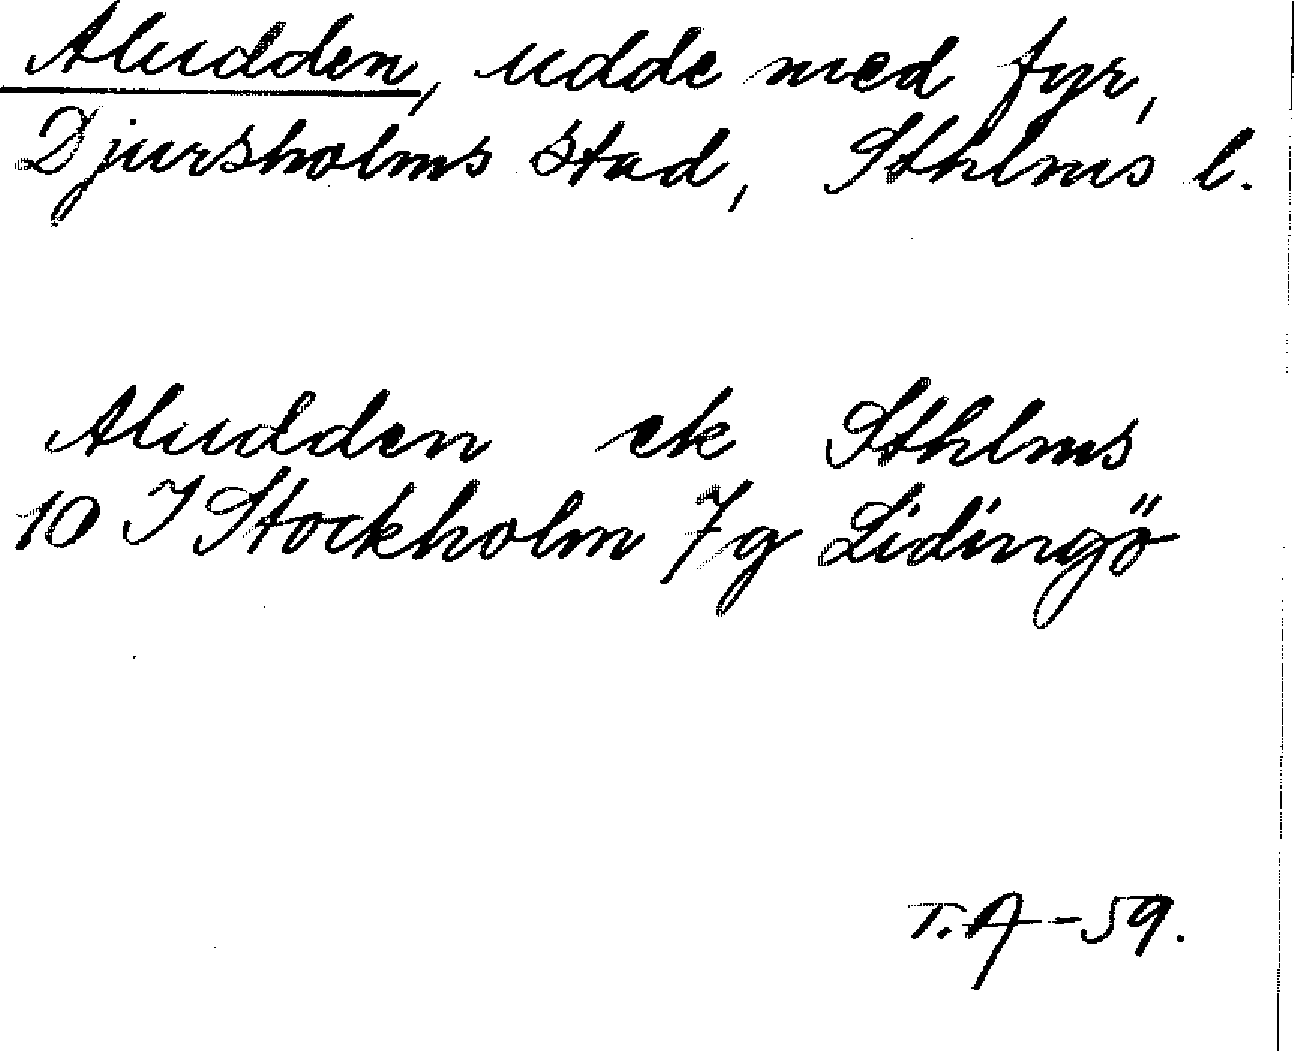 Aludden, udde med fyr,
Djursholms stad, Sthlms l.
Aludden ek Sthlms
10 I Stockholm 7g Lidingö
T.A-59.